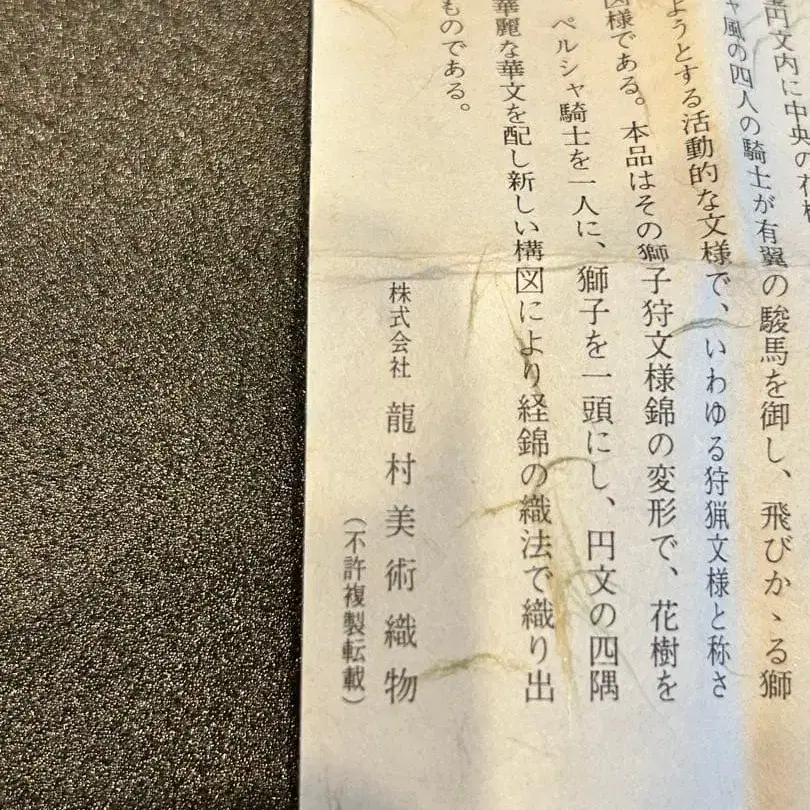 円文内に中央の花樹
ャ風の四人の騎士が有翼の駿馬を御し、飛びかゝる獅
ようとする活動的な文様で、いわゆる狩猟文様と称さ
図様である。本品はその獅子狩文様錦の変形で、花樹を
ペルシャ騎士を一人に、獅子を一頭にし、円文の四隅
華麗な華文を配し新しい構図により経錦の織法で織り出
ものである。
株式会社 龍村美術織物
(不許複製転載)